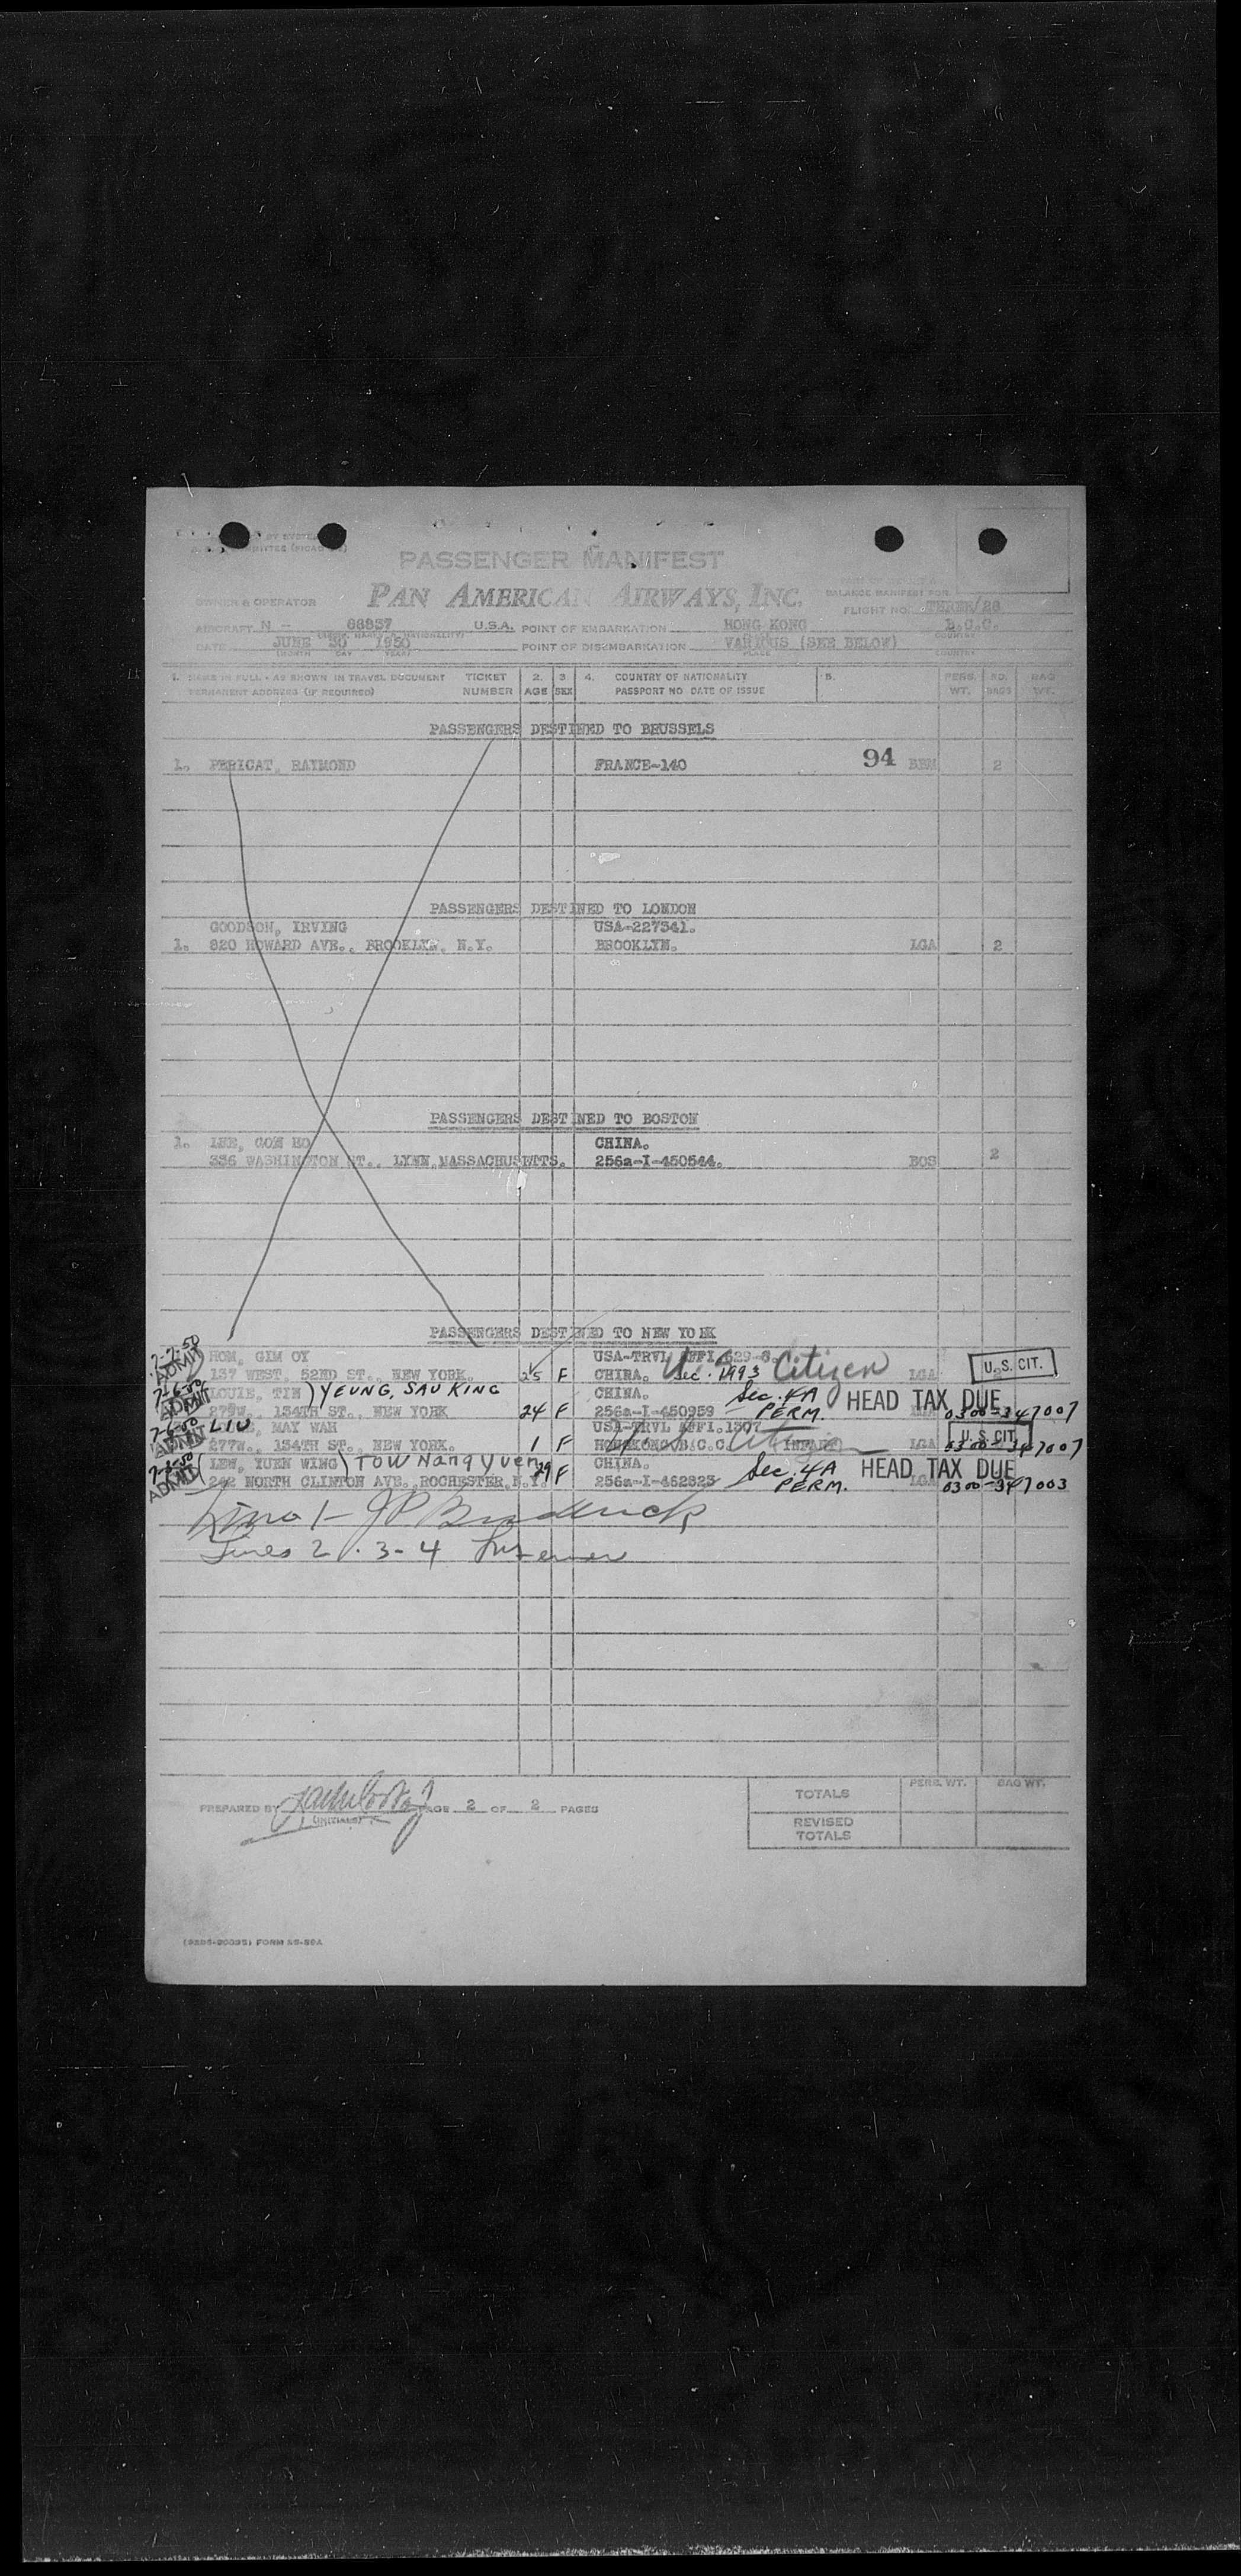 PASSENGER MANIFEST
PAN AMERICAN AIRWAYS, INC.
BALANCE MANIFEST FOR
OWNER & OPERATOR
FLIGHT NO.
AIRCRAFT N - 88857 U.S.A. POINT OF EMBARKATION HONG KONG B.C.C.
DATE JUNE 30 1950 POINT OF DISEMBARKATION VARIOUS (SEE BELOW)
(MONTH DAY YEAR) PLACE COUNTRY
1. NAME IN FULL - AS SHOWN IN TRAVEL DOCUMENT TICKET 2. 3 4. COUNTRY OF NATIONALITY 5. PERS. NO. BAG
PERMANENT ADDRESS (IF REQUIRED) NUMBER AGE SEX PASSPORT NO DATE OF ISSUE WT. BAGS WT.
PASSENGERS DESTINED TO BRUSSELS
1. PERICAT, RAYMOND FRANCE-140 94 2
PASSENGERS DESTINED TO LONDON
GOODSON, IRVING USA-227341.
1. 820 HOWARD AVE., BROOKLYN, N.Y. BROOKLYN. LGA 2
PASSENGERS DESTINED TO BOSTON
1. LEE, GON HO CHINA.
336 WASHINGTON ST., LYNN, MASSACHUSETTS. 256a-I-450544. BOS 2
PASSENGERS DESTINED TO NEW YORK
7-7-50 HOM, GIM OY USA-TRVL AFFI.
ADMIT 137 WEST, 52ND ST., NEW YORK. 25 F CHINA. Sec. 1993 U.S. Citizen LGA U.S. CIT.
7-6-50 LOUIE, TIN) YEUNG, SAU KING CHINA. Sec. 4A HEAD TAX DUE
ADMIT 277W., 134TH ST., NEW YORK 24 F 256a-I-450959 PERM. 0300-347007
7-6-50 LIU, MAY WAH USA-TRVL AFFI.1307 U.S. CIT.
ADMIT 277W., 134TH ST., NEW YORK. 1 F HONGKONG B.C.C. INFANT Citizen LGA 0300-347007
(LEW, YUEN WING) TOW Nang Yuen CHINA. Sec. 4A HEAD TAX DUE
ADMIT 242 NORTH CLINTON AVE., ROCHESTER, N.Y. 29 F 256a-I-462823 PERM. LGA 0300-347003
Line 1- JP Broderick
Lines 2-3-4
PREPARED BY PAGE 2 OF 2 PAGES
(INITIALS)
PERS. WT. BAG WT.
TOTALS
REVISED
TOTALS